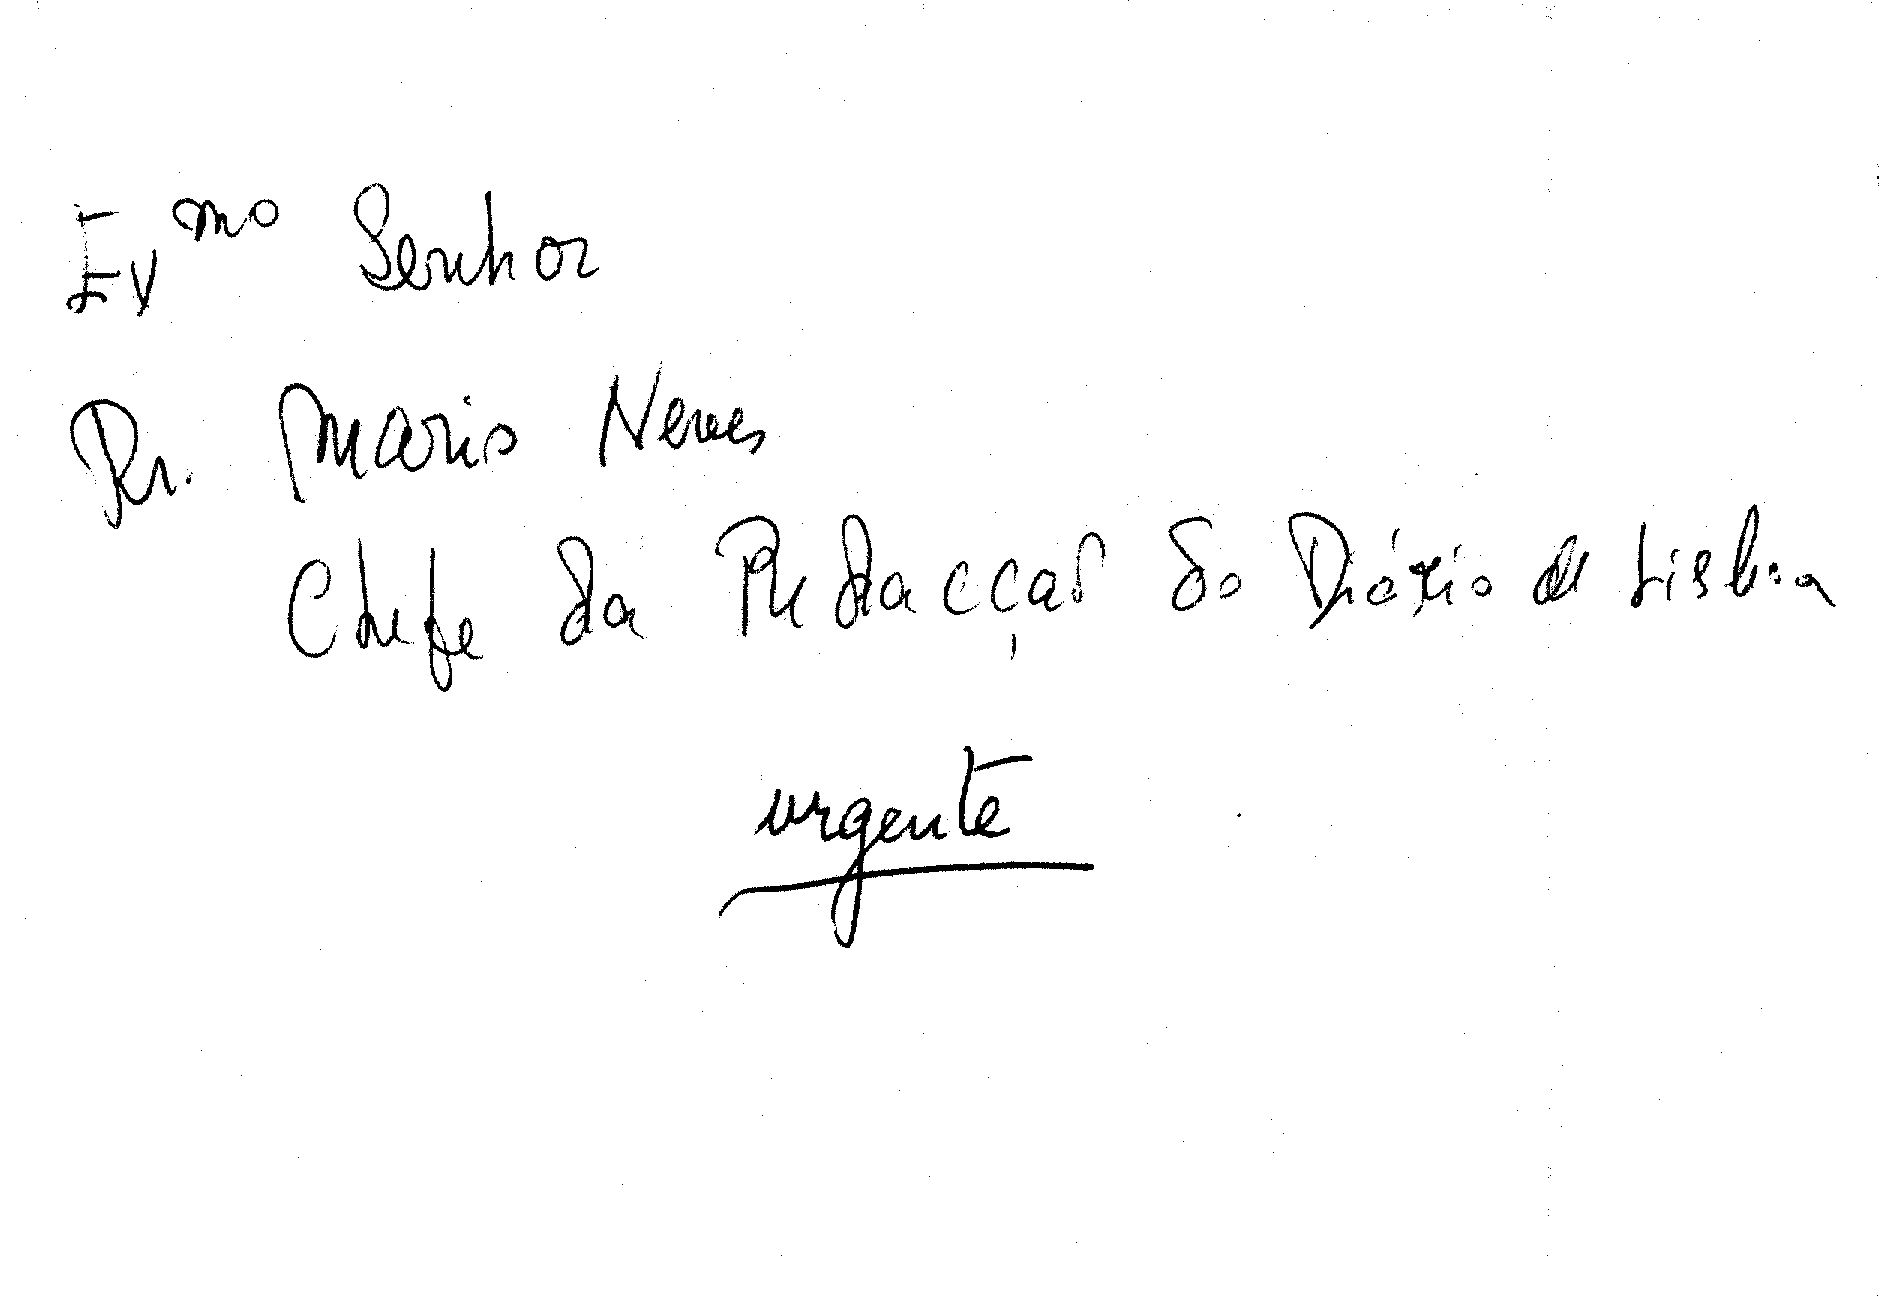 Exmo Senhor
Dr. Mario Neves
Chefe da Redacção do Diário de Lisboa
urgente